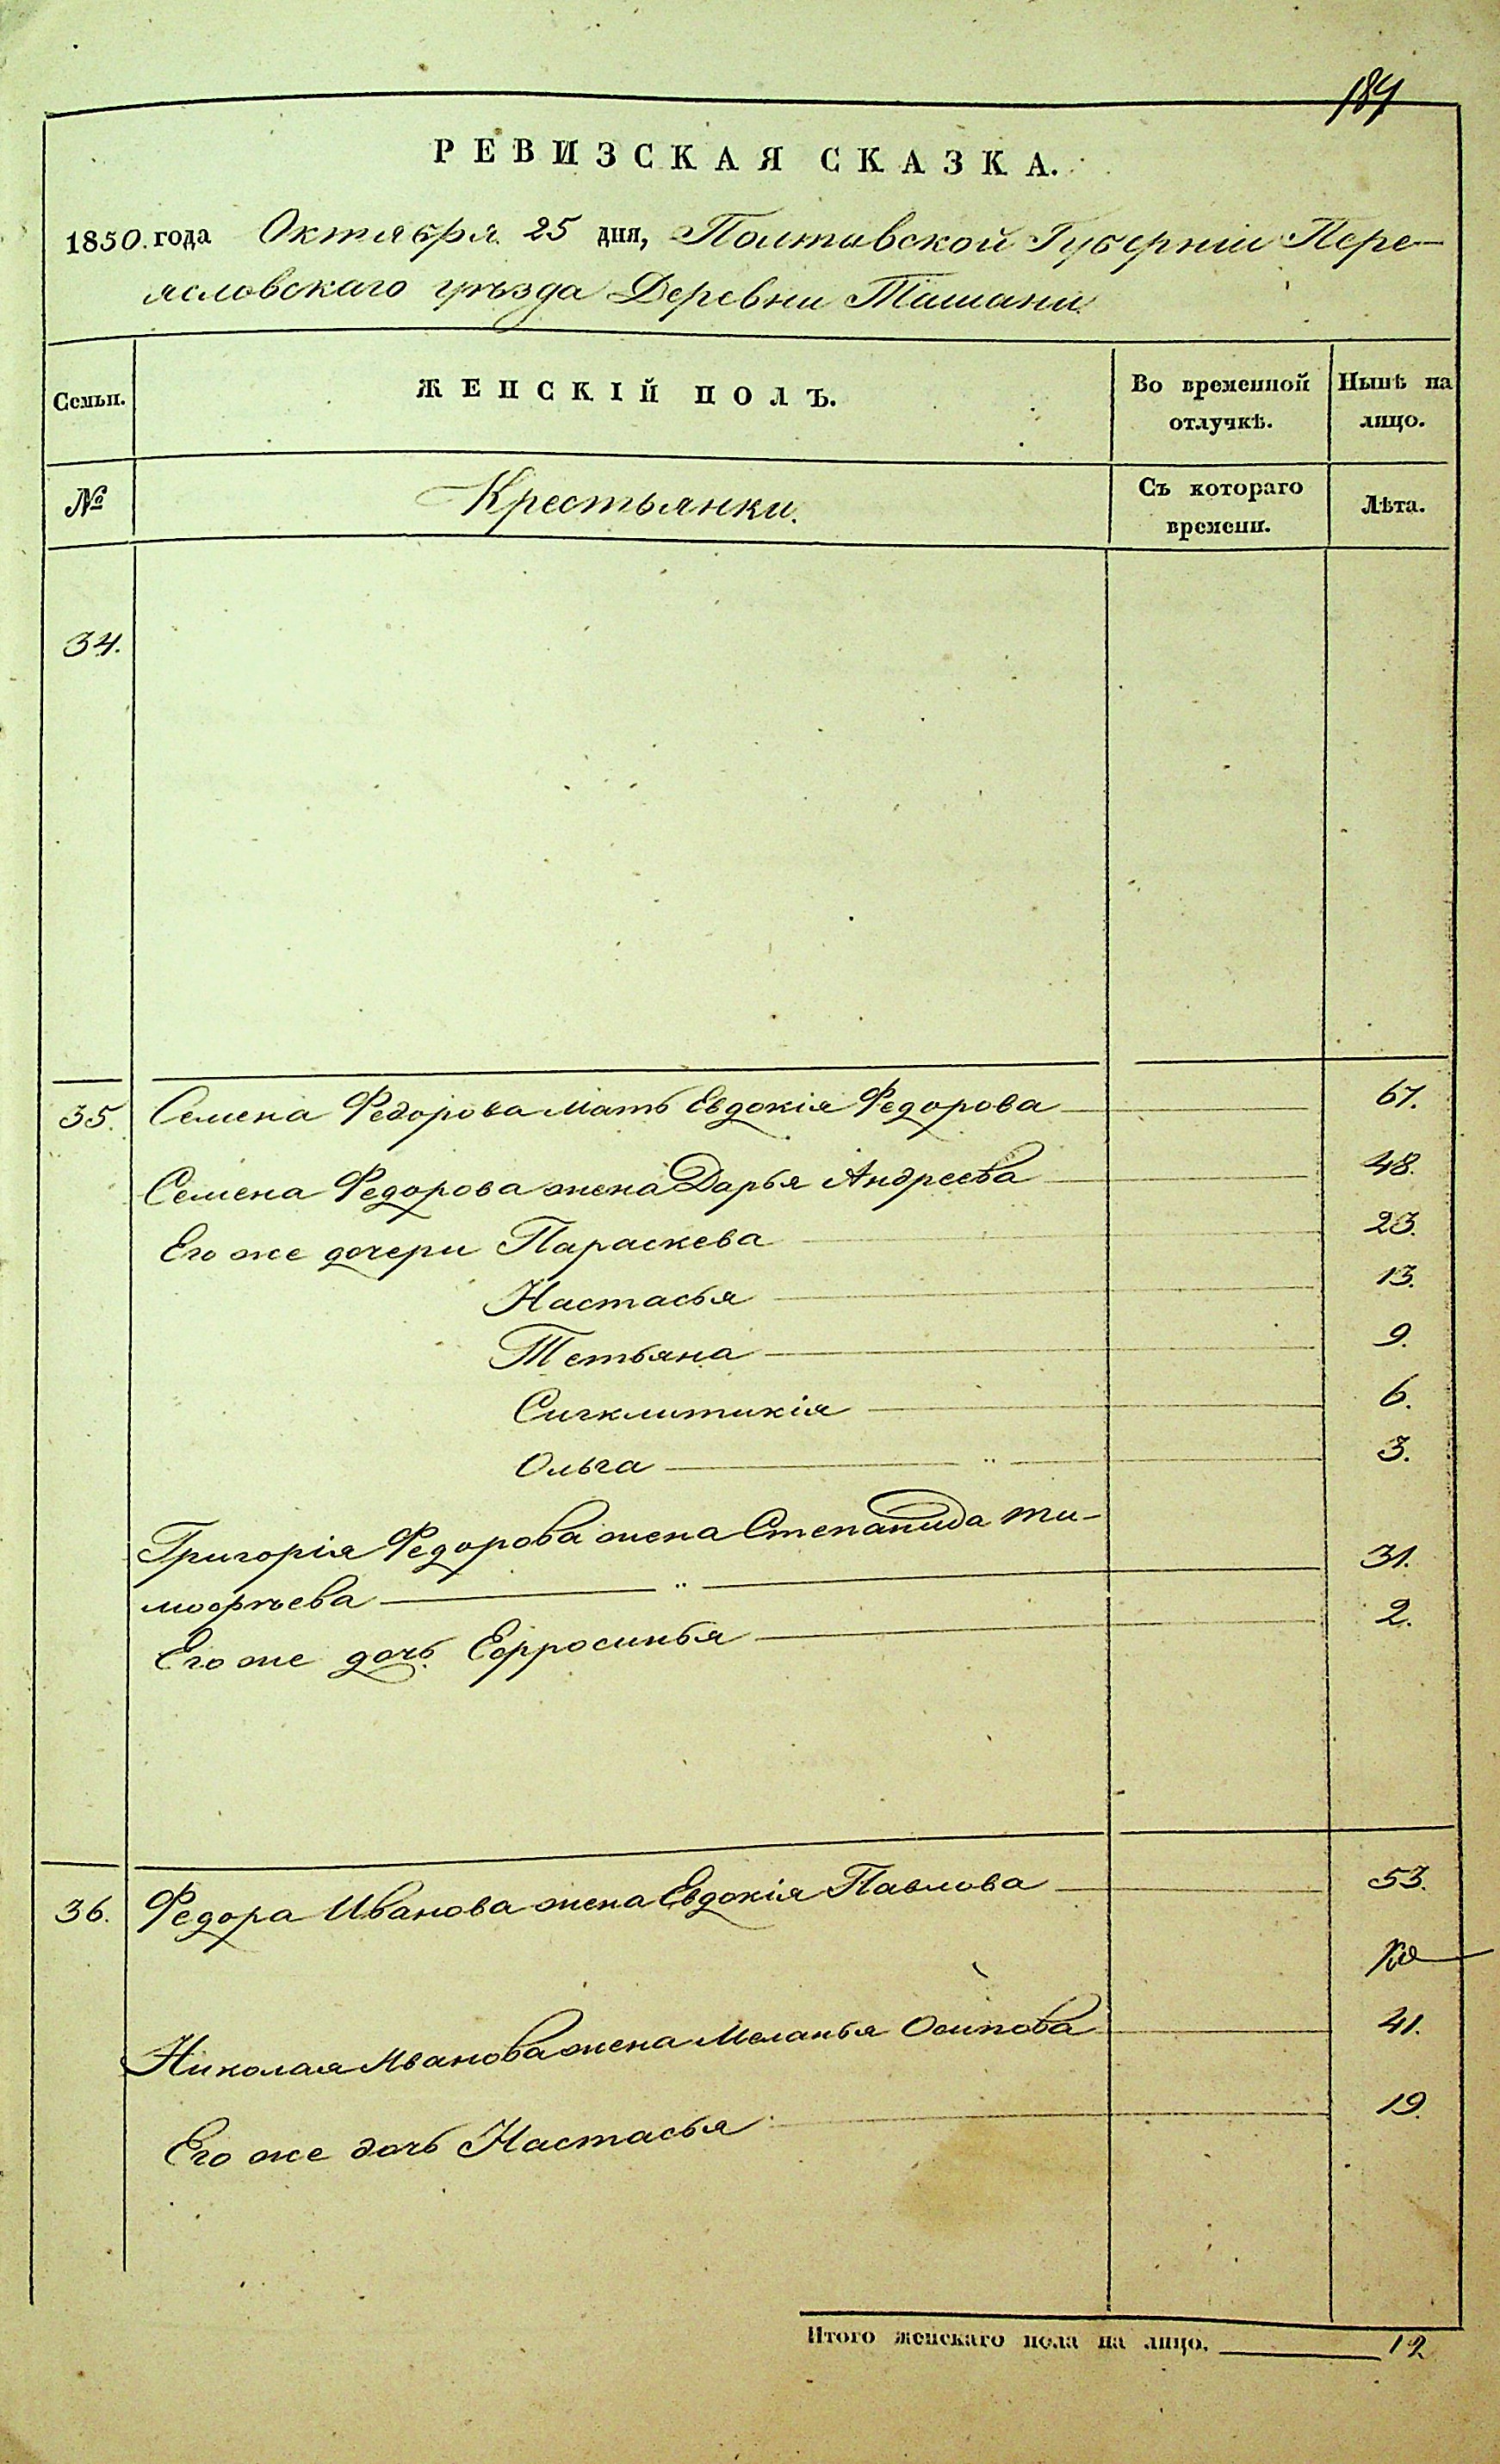 187
РЕВИЗСКАЯ СКАЗКА.
1850. года Октября 25 дня, Полтавской Губерніи Пере-
ясловскаго уѣзда Деревни Ташани.
Семьи. ЖЕНСКІЙ ПОЛЪ. Во временной отлучкѣ. Нынѣ на лицо.
№ Крестьянки. Съ котораго времени. Лѣта.
34.
35. Семена Федорова мать Евдокія Федорова 67.
Семена Федорова жена Дарья Андреева 48.
Его же дочери Параскева 23.
Настасья 13.
Тетьяна 9.
Сигклитикія 6.
Ольга 3.
Григорія Федорова жена Степанида Ти-
мофѣева 31.
Его же дочь Ефросинья 2.
36. Федора Иванова жена Евдокія Павлова 53.
Николая Иванова жена Меланья Осипова 41.
Его же дочь Настасья 19.
Итого женскаго пола на лицо. 12